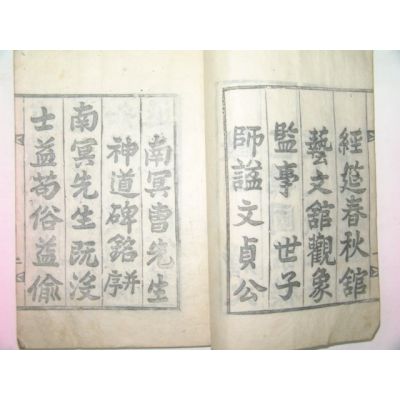 經筵春秋舘
藝文舘觀象
監事 世子
師諡文貞公
南冥曺先生
神道碑銘并序
南冥先生既没
士益苟俗益偷